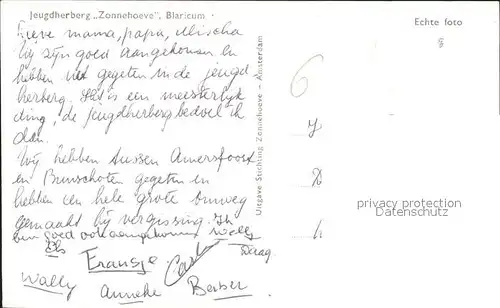 Jeugdherberg „Zonnehoeve", Blaricum
Echte foto
Lieve mama, papa, Mischa
Wij zijn goed aangekomen en
hebben net gegeten in de jeugd-
herberg. Het is een meesterlijk
ding, de jeugdherberg bedoel ik
dan.
Wij hebben tussen Amersfoort
en Bunschoten gegeten en
hebben een hele grote omweg
gemaakt bij vergissing. Ik
ben goed
Els
Fransje
Wally
Anneke
Berber
Uitgave Stichting Zonnehoeve - Amsterdam
6
privacy protection
Datenschutz